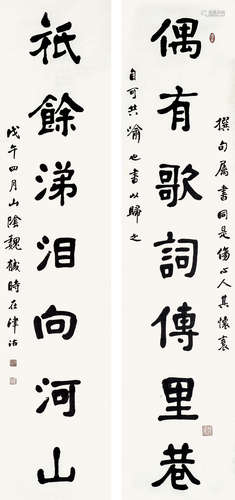 偶有歌詞傳里巷
撰句屬書同是傷心人其懷裏
自可共渝也書以歸之
祇餘涕淚向河山
戊午四月山陰魏戫時在津沽